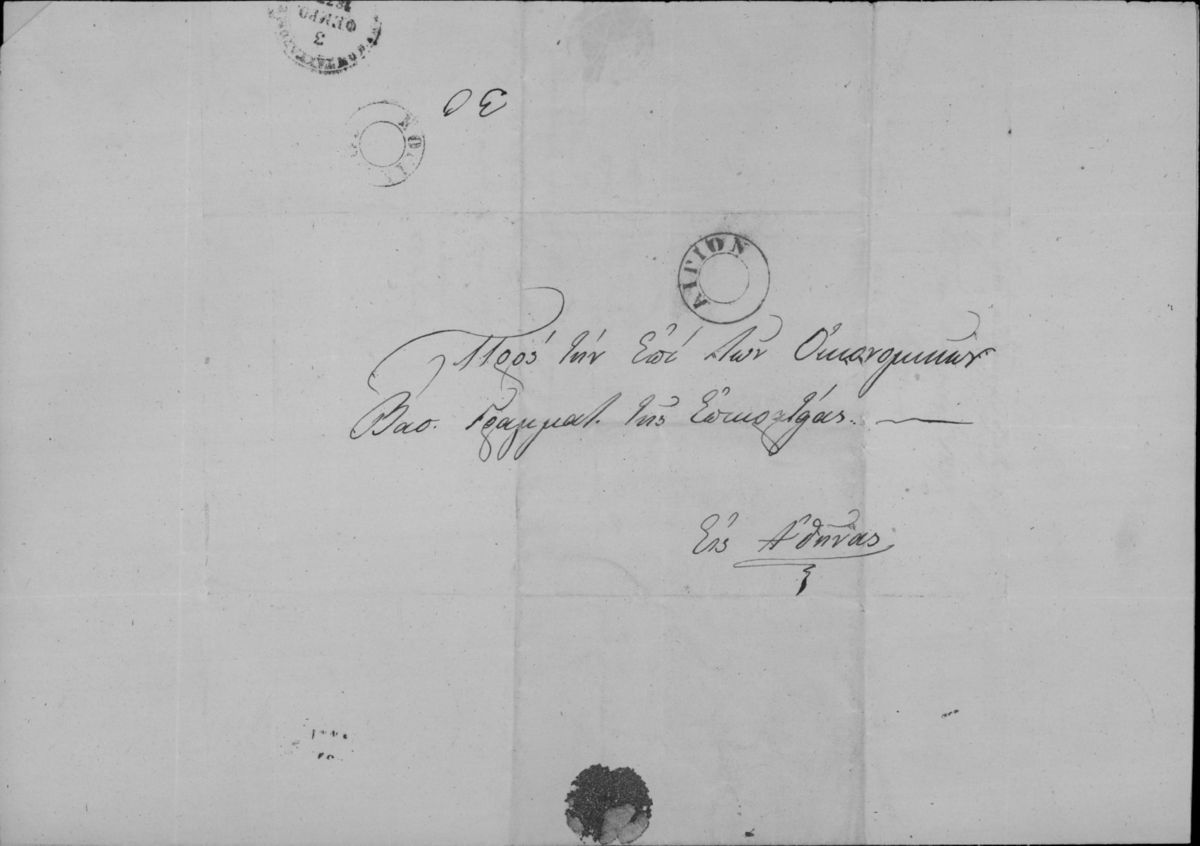 3
ΦΕΒΡΟ.
30
ΑΙΓΙΟΝ
Πρός τήν Επί των Οικονομικών
Βασ. Γραμματ. της Επικρατείας.
Εις Αθήνας